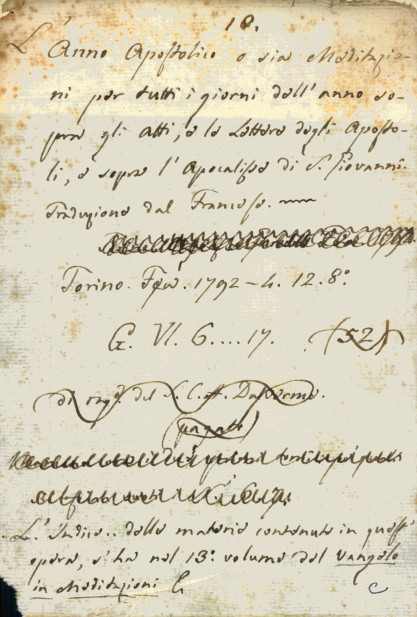 18.
L'Anno Apostolico o sia Meditazio-
ni per tutti i giorni dell'anno so-
pra gli atti, e le Lettere degli Aposto-
li, e sopra l'Apocalisse di S. Giovanni.
Traduzione dal Francese.
Torino. 1792 - 4. 12. 8º.
G. VI. 6....17. (52)
di del
L'Indice.. delle materie contenute in quest'
opera, s'ha nel 13º. volume del Vangelo
in Meditazioni